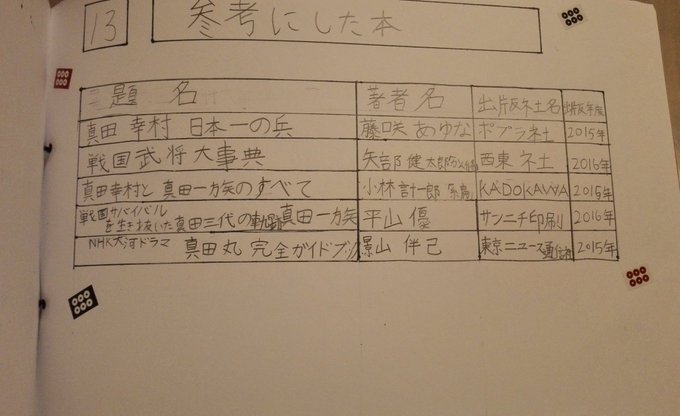 13 参考にした本
題名 著者名 出版社名 出版年度
真田 幸村 日本一の兵 藤咲 あゆな ポプラ社 2015年
戦国武将大事典 矢部 健太郎 西東社 2016年
真田幸村と 真田一族のすべて 小林 計一郎 KADOKAWA 2015年
戦国サバイバル
を生き抜いた真田三代の軌跡 真田一族 平山 優 サンニチ印刷 2016年
NHK大河ドラマ 真田丸 完全ガイドブック 影山 伴己 東京ニュース通信社 2015年